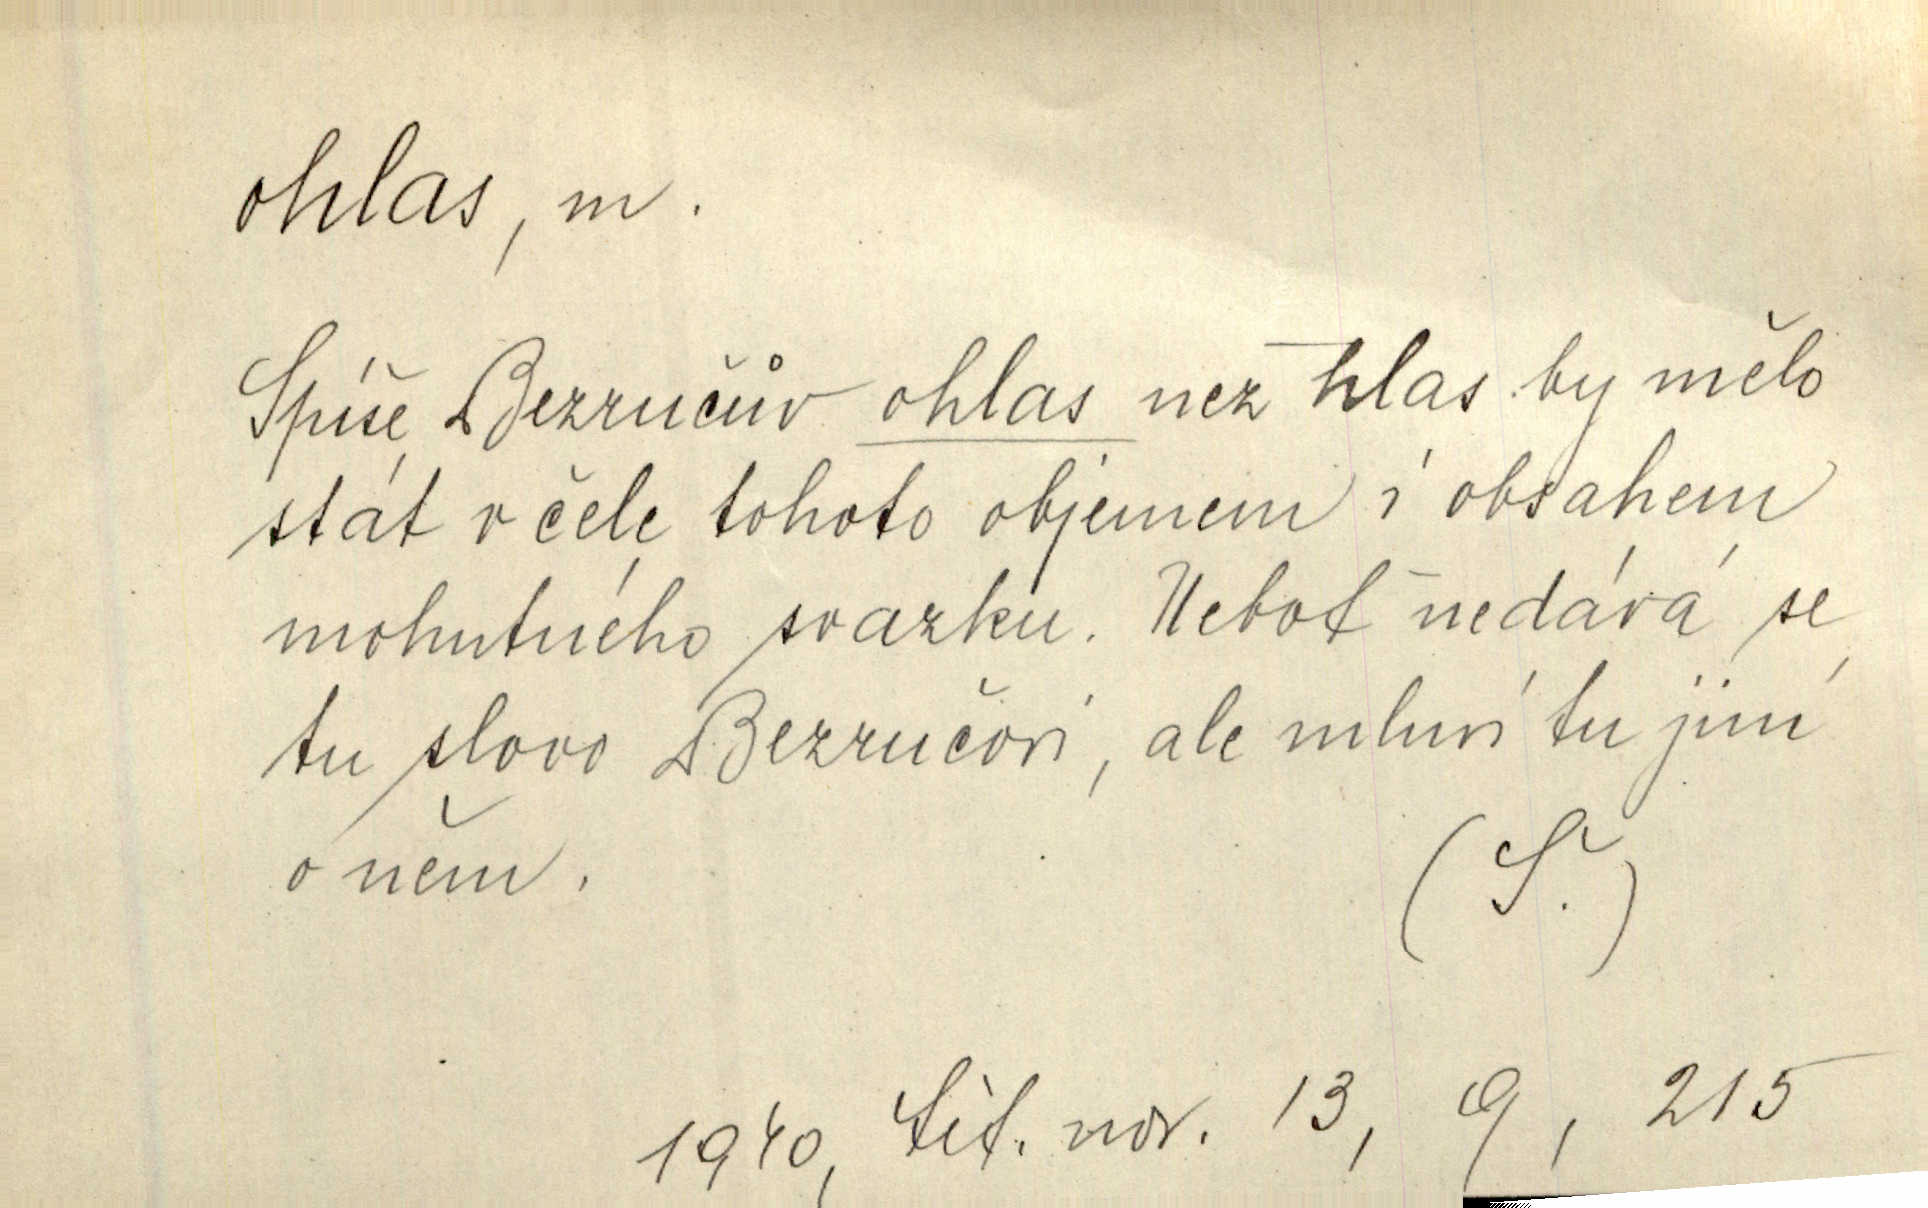 ohlas, m.
Spíše Bezručův ohlas než hlas by mělo
stát v čele tohoto objemem i obsahem
mohutného svazku. Neboť nedává se
tu slovo Bezručovi, ale mluví tu jiní
o něm.
(Š.)
1940, Lit. nov. 13, 9, 215